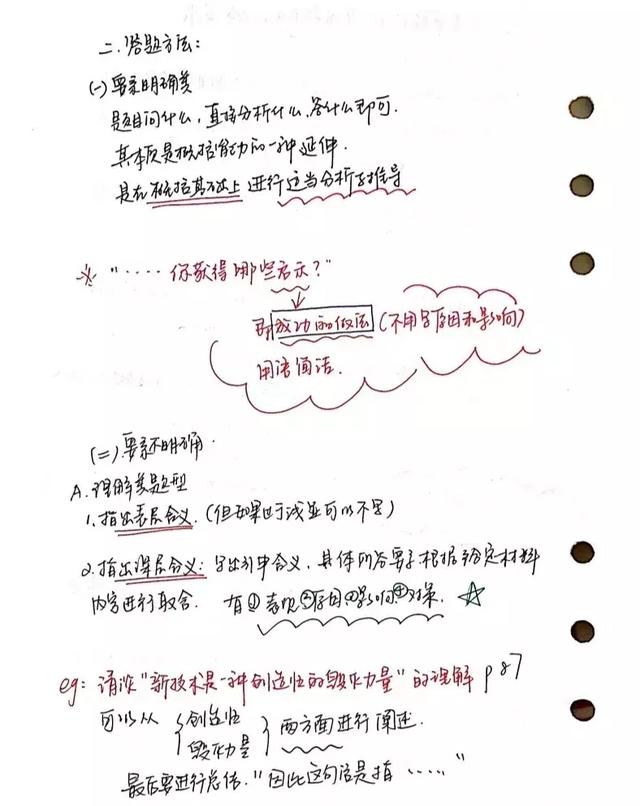 二.答题方法：
(一)要素明确类
题目问什么，直接分析什么，答什么即可.
其本质是概括能力的一种延伸.
是在概括基础上进行适当分析与推导
※"……你获得哪些启示？"
即成功的做法(不用写原因和影响)
用语简洁.
(二).要素不明确.
A.理解类题型
1.指出表层含义.(但如果过于浅显可以不写)
2.指出深层含义：写出引申含义，具体所答要素根据给定材料
内容进行取舍. 有①表现②原因③影响④对策. ☆
eg：请谈"新技术是一种创造性的毁灭力量"的理解 P87
可以从{创造性
毁灭力量}两方面进行阐述.
最后要进行总结."因此这句话是指……"